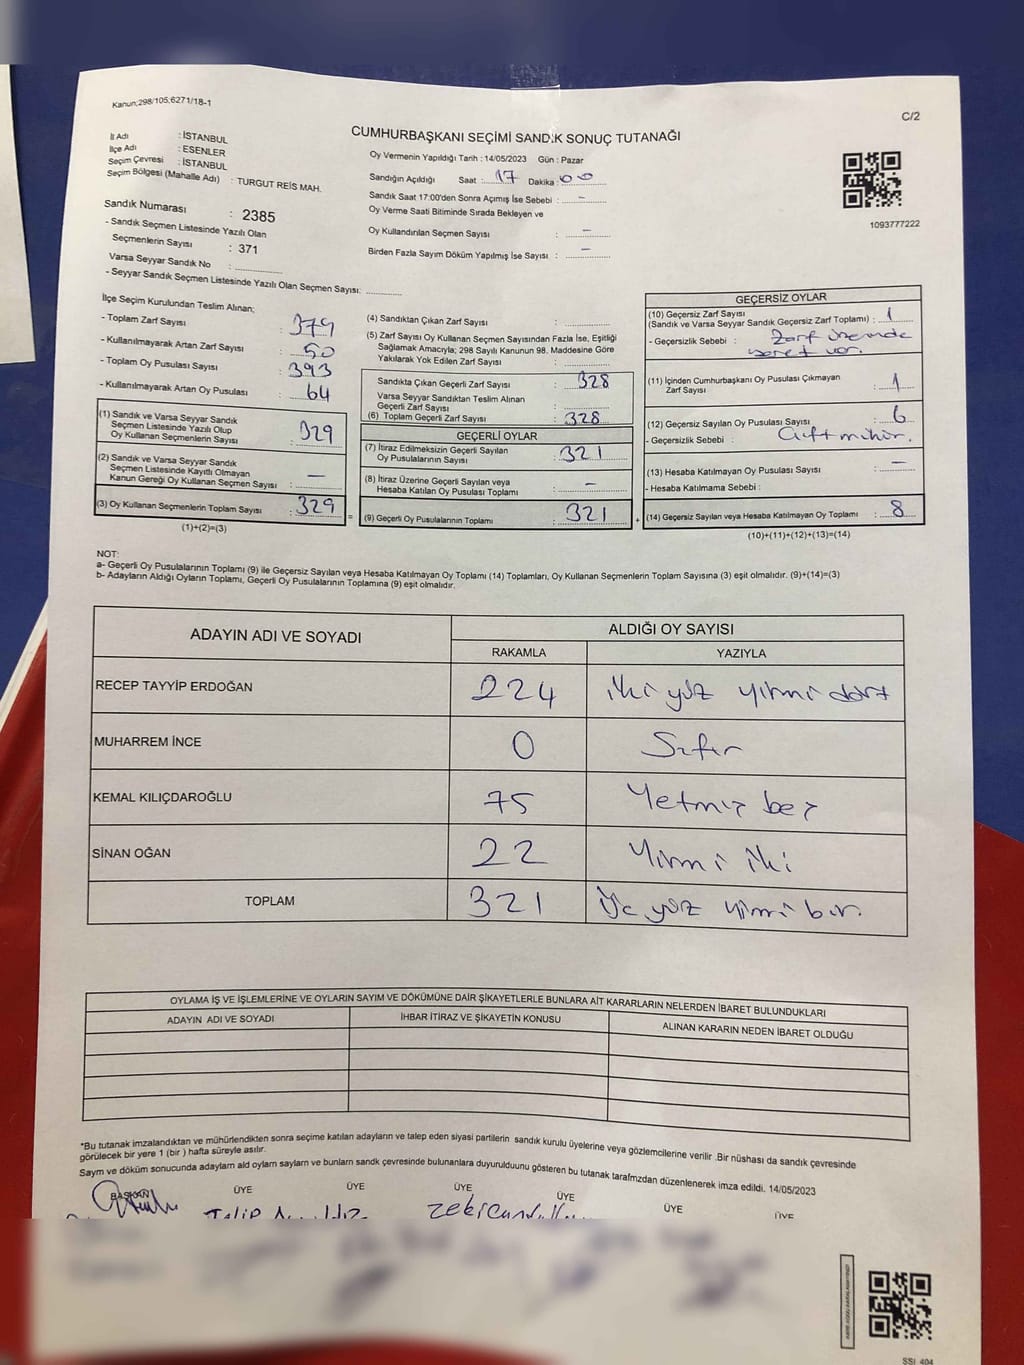 Kanun;298/105;6271/18-1
C/2
CUMHURBAŞKANI SEÇİMİ SANDIK SONUÇ TUTANAĞI
İl Adı : İSTANBUL
İlçe Adı : ESENLER
Seçim Çevresi : İSTANBUL
Seçim Bölgesi (Mahalle Adı) : TURGUT REİS MAH.
Sandık Numarası : 2385
- Sandık Seçmen Listesinde Yazılı Olan
Seçmenlerin Sayısı : 371
Varsa Seyyar Sandık No :
- Seyyar Sandık Seçmen Listesinde Yazılı Olan Seçmen Sayısı:
Oy Vermenin Yapıldığı Tarih : 14/05/2023 Gün : Pazar
Sandığın Açıldığı Saat : 17 Dakika : 00
Sandık Saat 17:00'den Sonra Açımış İse Sebebi : -
Oy Verme Saati Bitiminde Sırada Bekleyen ve
Oy Kullandırılan Seçmen Sayısı : -
Birden Fazla Sayım Döküm Yapılmış İse Sayısı : -
1093777222
İlçe Seçim Kurulundan Teslim Alınan;
- Toplam Zarf Sayısı : 379
- Kullanılmayarak Artan Zarf Sayısı : 50
- Toplam Oy Pusulası Sayısı : 393
- Kullanılmayarak Artan Oy Pusulası : 64
(1) Sandık ve Varsa Seyyar Sandık
Seçmen Listesinde Yazılı Olup
Oy Kullanan Seçmenlerin Sayısı : 329
(2) Sandık ve Varsa Seyyar Sandık
Seçmen Listesinde Kayıtlı Olmayan
Kanun Gereği Oy Kullanan Seçmen Sayısı : -
(3) Oy Kullanan Seçmenlerin Toplam Sayısı : 329 =
(1)+(2)=(3)
(4) Sandıktan Çıkan Zarf Sayısı :
(5) Zarf Sayısı Oy Kullanan Seçmen Sayısından Fazla İse, Eşitliği
Sağlamak Amacıyla; 298 Sayılı Kanunun 98. Maddesine Göre
Yakılarak Yok Edilen Zarf Sayısı :
Sandıkta Çıkan Geçerli Zarf Sayısı : 328
Varsa Seyyar Sandıktan Teslim Alınan
Geçerli Zarf Sayısı :
(6) Toplam Geçerli Zarf Sayısı : 328
GEÇERLİ OYLAR
(7) İtiraz Edilmeksizin Geçerli Sayılan
Oy Pusulalarının Sayısı : 321
(8) İtiraz Üzerine Geçerli Sayılan veya
Hesaba Katılan Oy Pusulası Toplamı : -
(9) Geçerli Oy Pusulalarının Toplamı : 321 +
GEÇERSİZ OYLAR
(10) Geçersiz Zarf Sayısı
(Sandık ve Varsa Seyyar Sandık Geçersiz Zarf Toplamı) : 1
- Geçersizlik Sebebi : Zarf üzerinde
işaret var.
(11) İçinden Cumhurbaşkanı Oy Pusulası Çıkmayan
Zarf Sayısı : 1
(12) Geçersiz Sayılan Oy Pusulası Sayısı : 6
- Geçersizlik Sebebi : Çift mühür.
(13) Hesaba Katılmayan Oy Pusulası Sayısı : -
- Hesaba Katılmama Sebebi :
(14) Geçersiz Sayılan veya Hesaba Katılmayan Oy Toplamı : 8
(10)+(11)+(12)+(13)=(14)
NOT:
a- Geçerli Oy Pusulalarının Toplamı (9) ile Geçersiz Sayılan veya Hesaba Katılmayan Oy Toplamı (14) Toplamları, Oy Kullanan Seçmenlerin Toplam Sayısına (3) eşit olmalıdır. (9)+(14)=(3)
b- Adayların Aldığı Oyların Toplamı, Geçerli Oy Pusulalarının Toplamına (9) eşit olmalıdır.
ADAYIN ADI VE SOYADI ALDIĞI OY SAYISI
RAKAMLA YAZIYLA
RECEP TAYYİP ERDOĞAN 224 iki yüz yirmi dört
MUHARREM İNCE 0 Sıfır
KEMAL KILIÇDAROĞLU 75 Yetmiş beş
SİNAN OĞAN 22 Yirmi iki
TOPLAM 321 Üç yüz yirmi bir.
OYLAMA İŞ VE İŞLEMLERİNE VE OYLARIN SAYIM VE DÖKÜMÜNE DAİR ŞİKAYETLERLE BUNLARA AİT KARARLARIN NELERDEN İBARET BULUNDUKLARI
ADAYIN ADI VE SOYADI İHBAR İTİRAZ VE ŞİKAYETİN KONUSU ALINAN KARARIN NEDEN İBARET OLDUĞU
*Bu tutanak imzalandıktan ve mühürlendikten sonra seçime katılan adayların ve talep eden siyasi partilerin sandık kurulu üyelerine veya gözlemcilerine verilir .Bir nüshası da sandık çevresinde
görülecek bir yere 1 (bir ) hafta süreyle asılır.
Saym ve döküm sonucunda adaylarn ald oylarn saylarn ve bunlarn sandk çevresinde bulunanlara duyurulduunu gösteren bu tutanak tarafmzdan düzenlenerek imza edildi. 14/05/2023
BAŞKAN ÜYE ÜYE ÜYE ÜYE ÜYE ÜYE
SSI 404